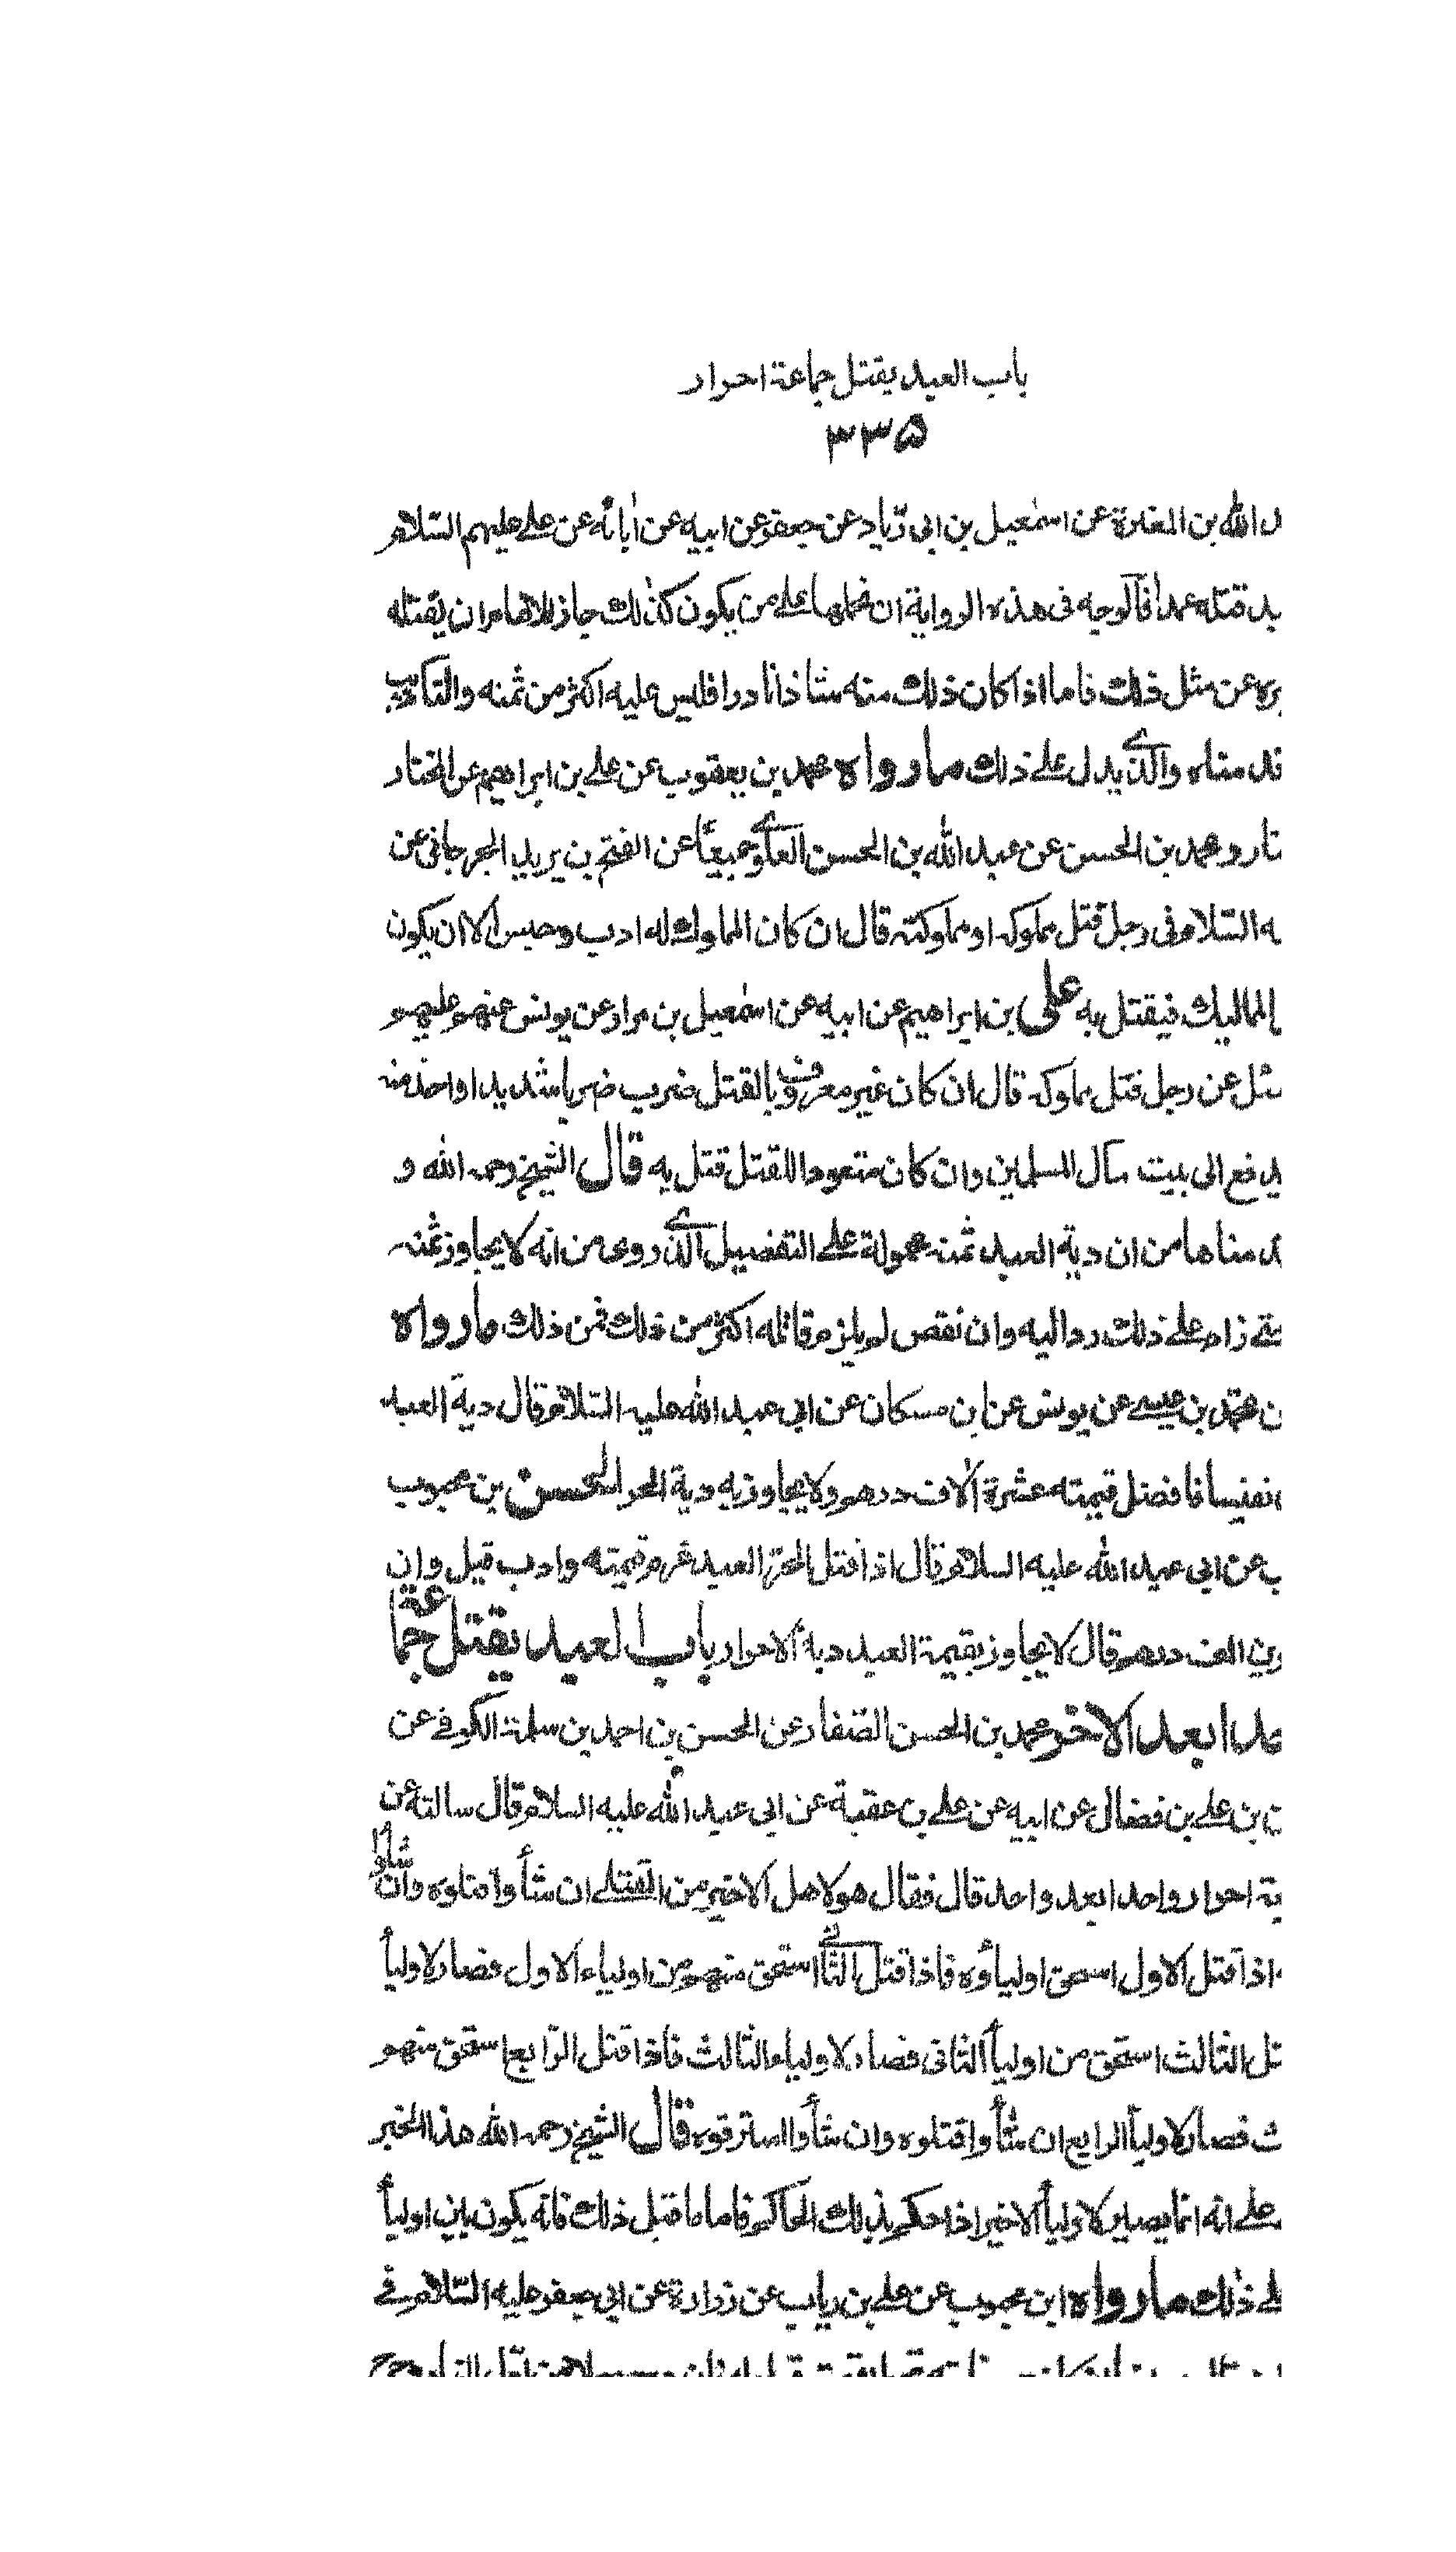 باب العبد يقتل جماعة احرار
۳۳۵
الله بن المغيرة عن اسمعيل بن ابى زياد عن جعفر عن ابيه عن اٰبائه عن على عليهم السّلام
قتله عمداً فالوجه فى هذه الرواية ان نحملها على من يكون كذلك جاز للامام ان يقتله
عن مثل ذلك فاما اذا كان ذلك منه شاذا نادرا فليس عليه اكثر من ثمنه والتاديب
قدمناه والّذى يدل على ذلك ما رواه محمد بن يعقوب عن على بن ابراهيم عن المختار
ومحمد بن الحسن عن عبد الله بن الحسن العلوى جميعًا عن الفتح بن يزيد الجرجانى عن
السّلام فى رجل قتل مملوكه او مملوكته قال ان كان المملوك له ادب وحبس الا ان يكون
المماليك فيقتل به على بن ابراهيم عن ابيه عن اسمعيل بن مراد عن يونس عنهم عليهم
سئل عن رجل قتل مملوكه قال ان كان غير معروف بالقتل ضرب ضرباً شديدا واخذ منه
يدفع الى بيت مال المسلمين وان كان متعودا للقتل قتل به قال الشيخ رحمه الله و
من ان دية العبد ثمنه محمولة على التفضيل الّذى روى من انه لا يجاوز ثمنه
على ذلك رد اليه وان نقص لم يلزم قاتله اكثر من ذلك فمن ذلك ما رواه
محمّد بن عيسى عن يونس عن ابن مسكان عن ابى عبد الله عليه السّلام قال دية العبد
نفيساً فافضل قيمته عشرة اٰلاف درهم ولا يجاوز به دية الحر الحسن بن محبوب
عن ابى عبد الله عليه السلام قال اذا قتل الحرّ العبد غرم قيمته وادب قيل وان
الف درهم قال لا يجاوز بقيمة العبد دية الاحرار باب العبد يقتل جماعة
بعد الاخر محمد بن الحسن الصّفار عن الحسن بن احمد بن سلمة الكوفى عن
بن على بن فضال عن ابيه عن على بن عقبة عن ابى عبد الله عليه السلام قال سالته عن
احرار واحدا بعد واحد قال فقال هو لاهل الاخير من القتلى ان شأوا قتلوه وان شاؤا
اذا قتل الاول استحق اولياؤه فاذا قتل الثّانى استحق منهم من اولياء الاول فصار لاولياء
الثّالث استحق من اولياء الثّانى فصار لاولياء الثّالث فاذا قتل الرّابع استحق منهم
فصار لاولياء الرابع ان شأوا قتلوه وان شأوا استرقوه قال الشيخ رحمه الله هذا الخبر
على انه انما يصير لاولياء الاخير اذا حكم بذلك الحاكم فاما ما قبل ذلك فانه يكون بين اولياء
ذلك ما رواه ابن محبوب عن على بن رياب عن زرارة عن ابى جعفر عليه السّلام فى